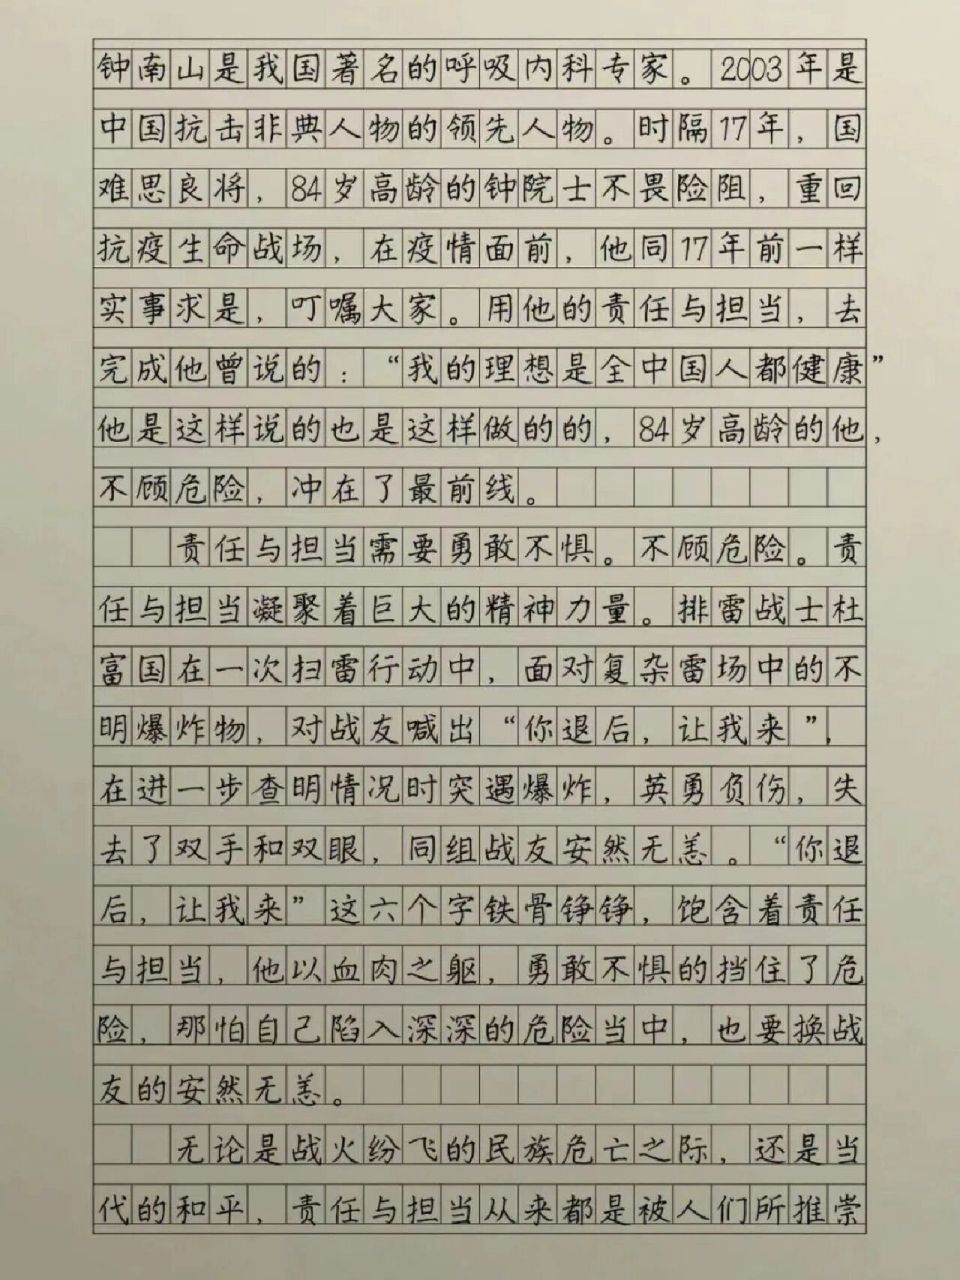 钟南山是我国著名的呼吸内科专家。2003年是
中国抗击非典人物的领先人物。时隔17年，国
难思良将，84岁高龄的钟院士不畏险阻，重回
抗疫生命战场，在疫情面前，他同17年前一样
实事求是，叮嘱大家。用他的责任与担当，去
完成他曾说的：“我的理想是全中国人都健康”
他是这样说的也是这样做的的，84岁高龄的他，
不顾危险，冲在了最前线。
责任与担当需要勇敢不惧。不顾危险。责
任与担当凝聚着巨大的精神力量。排雷战士杜
富国在一次扫雷行动中，面对复杂雷场中的不
明爆炸物，对战友喊出“你退后，让我来”，
在进一步查明情况时突遇爆炸，英勇负伤，失
去了双手和双眼，同组战友安然无恙。“你退
后，让我来”这六个字铁骨铮铮，饱含着责任
与担当，他以血肉之躯，勇敢不惧的挡住了危
险，那怕自己陷入深深的危险当中，也要换战
友的安然无恙。
无论是战火纷飞的民族危亡之际，还是当
代的和平，责任与担当从来都是被人们所推崇